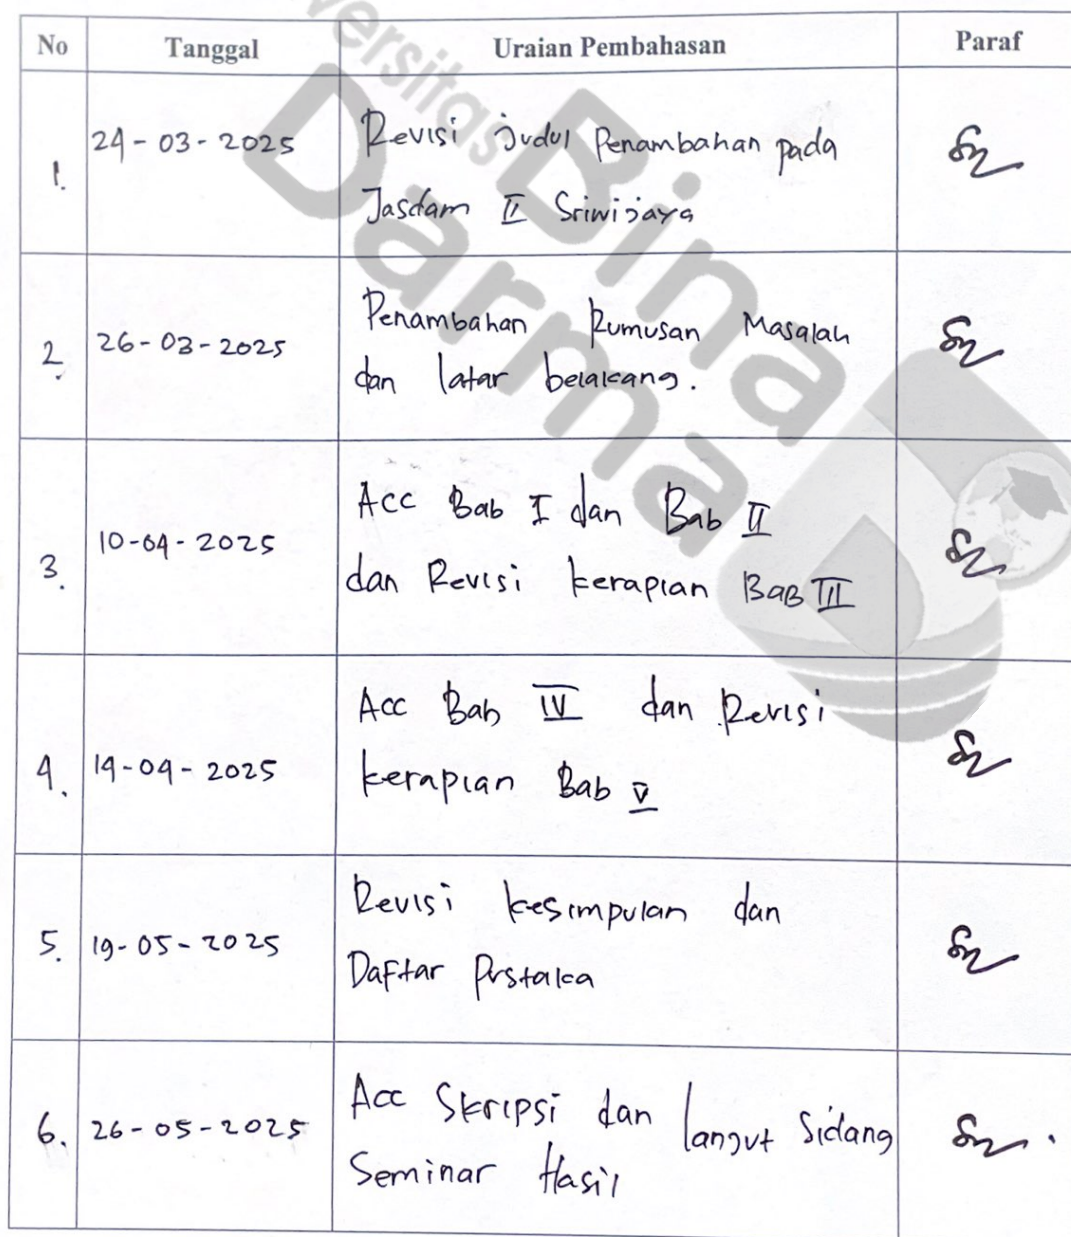 No Tanggal Uraian Pembahasan Paraf
1. 24-03-2025 Revisi judul Penambahan pada
Jasdam II Sriwijaya
2. 26-03-2025 Penambahan Rumusan Masalah
dan latar belakang.
3. 10-04-2025 Acc Bab I dan Bab II
dan Revisi kerapian Bab III
4. 14-04-2025 Acc Bab IV dan Revisi
kerapian Bab V
5. 19-05-2025 Revisi kesimpulan dan
Daftar Pustaka
6. 26-05-2025 Acc Skripsi dan lanjut Sidang
Seminar Hasil
versitas
Bina
Darma